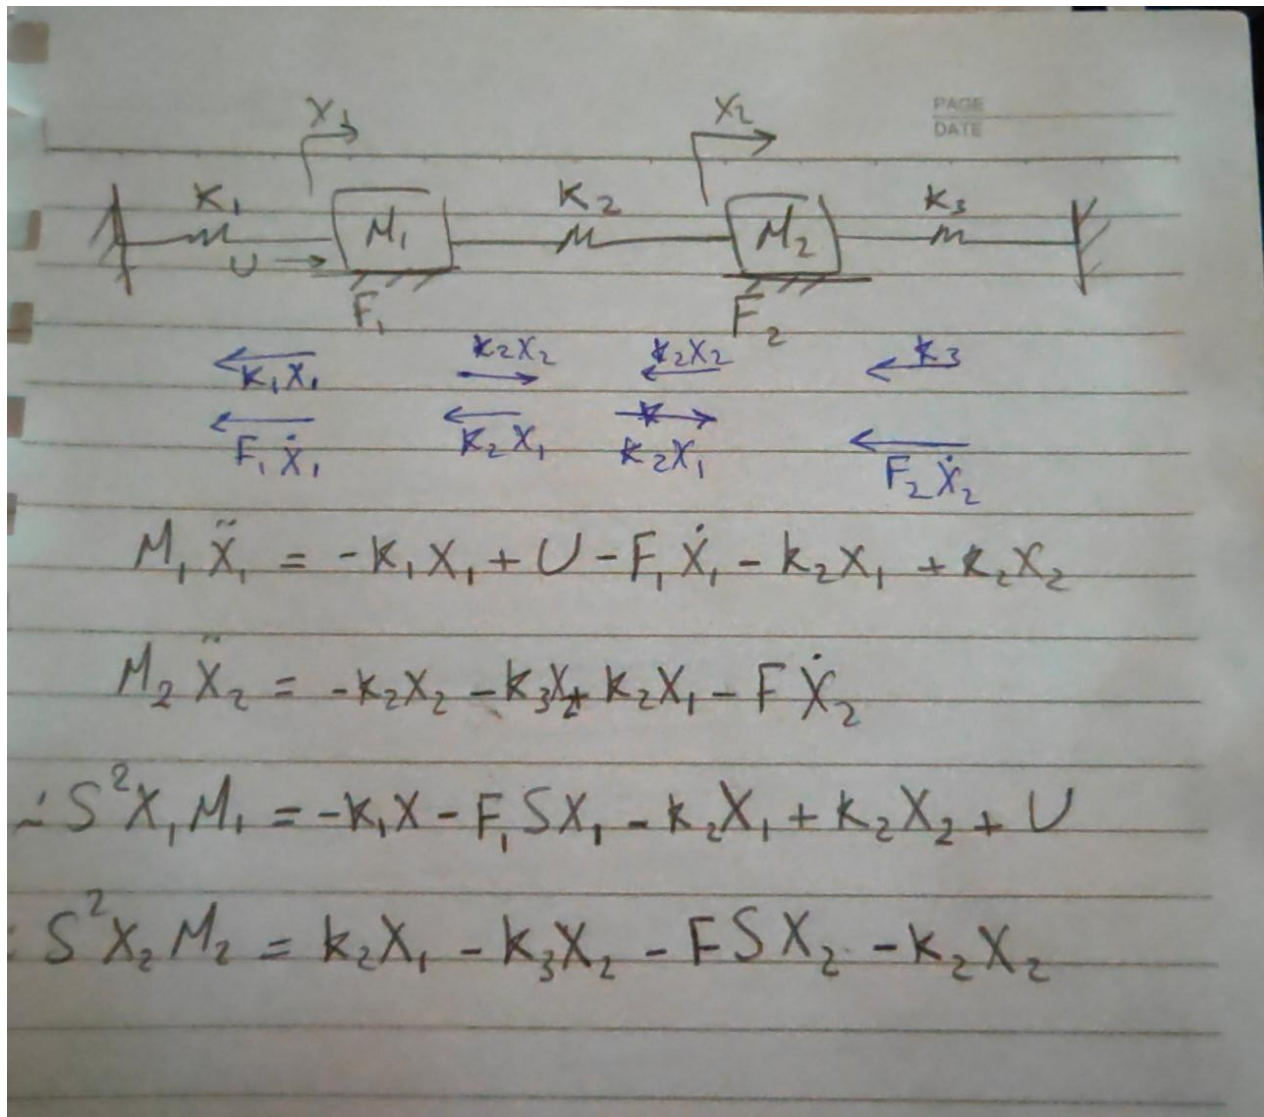 X₁ X₂ PAGE
DATE
K₁ M₁ K₂ M₂ K₃
U →
F₁ F₂
K₁X₁ K₂X₂ K₂X₂ K₃
F₁Ẋ₁ K₂X₁ K K₂X₁ F₂Ẋ₂
M₁Ẍ₁ = -K₁X₁ + U - F₁Ẋ₁ - K₂X₁ + K₂X₂
M₂Ẍ₂ = -K₂X₂ - K₃X₂ + K₂X₁ - FẊ₂
∴ S²X₁M₁ = -K₁X - F₁SX₁ - K₂X₁ + K₂X₂ + U
: S²X₂M₂ = K₂X₁ - K₃X₂ - FSX₂ - K₂X₂